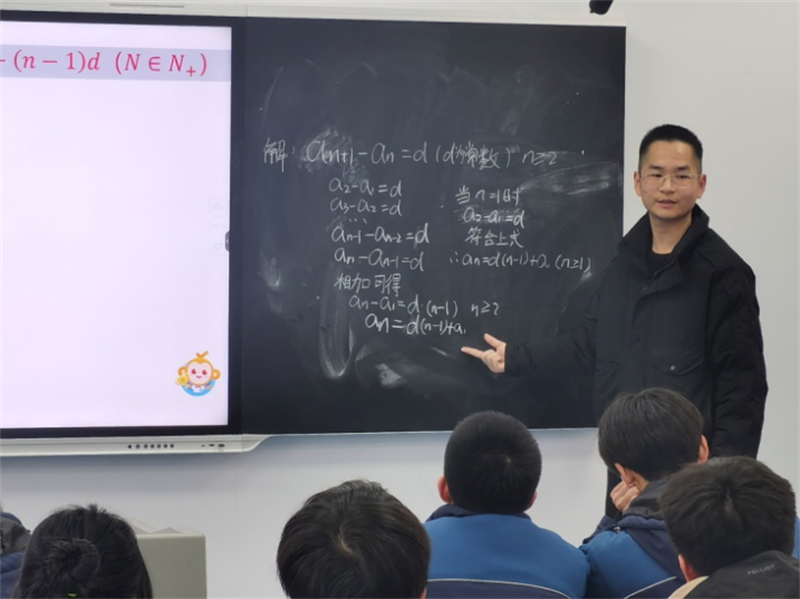 - (n − 1)d (N ∈ N₊)
解: an+1 - an = d (d为常数) n≥2
a2 - a1 = d
a3 - a2 = d
...
an-1 - an-2 = d
an - an-1 = d
相加可得
an - a1 = d·(n-1) n≥2
an = d(n-1)+a1
当n=1时
a2 - a1 = d
符合上式
∴ an = d(n-1)+a1 (n≥1)